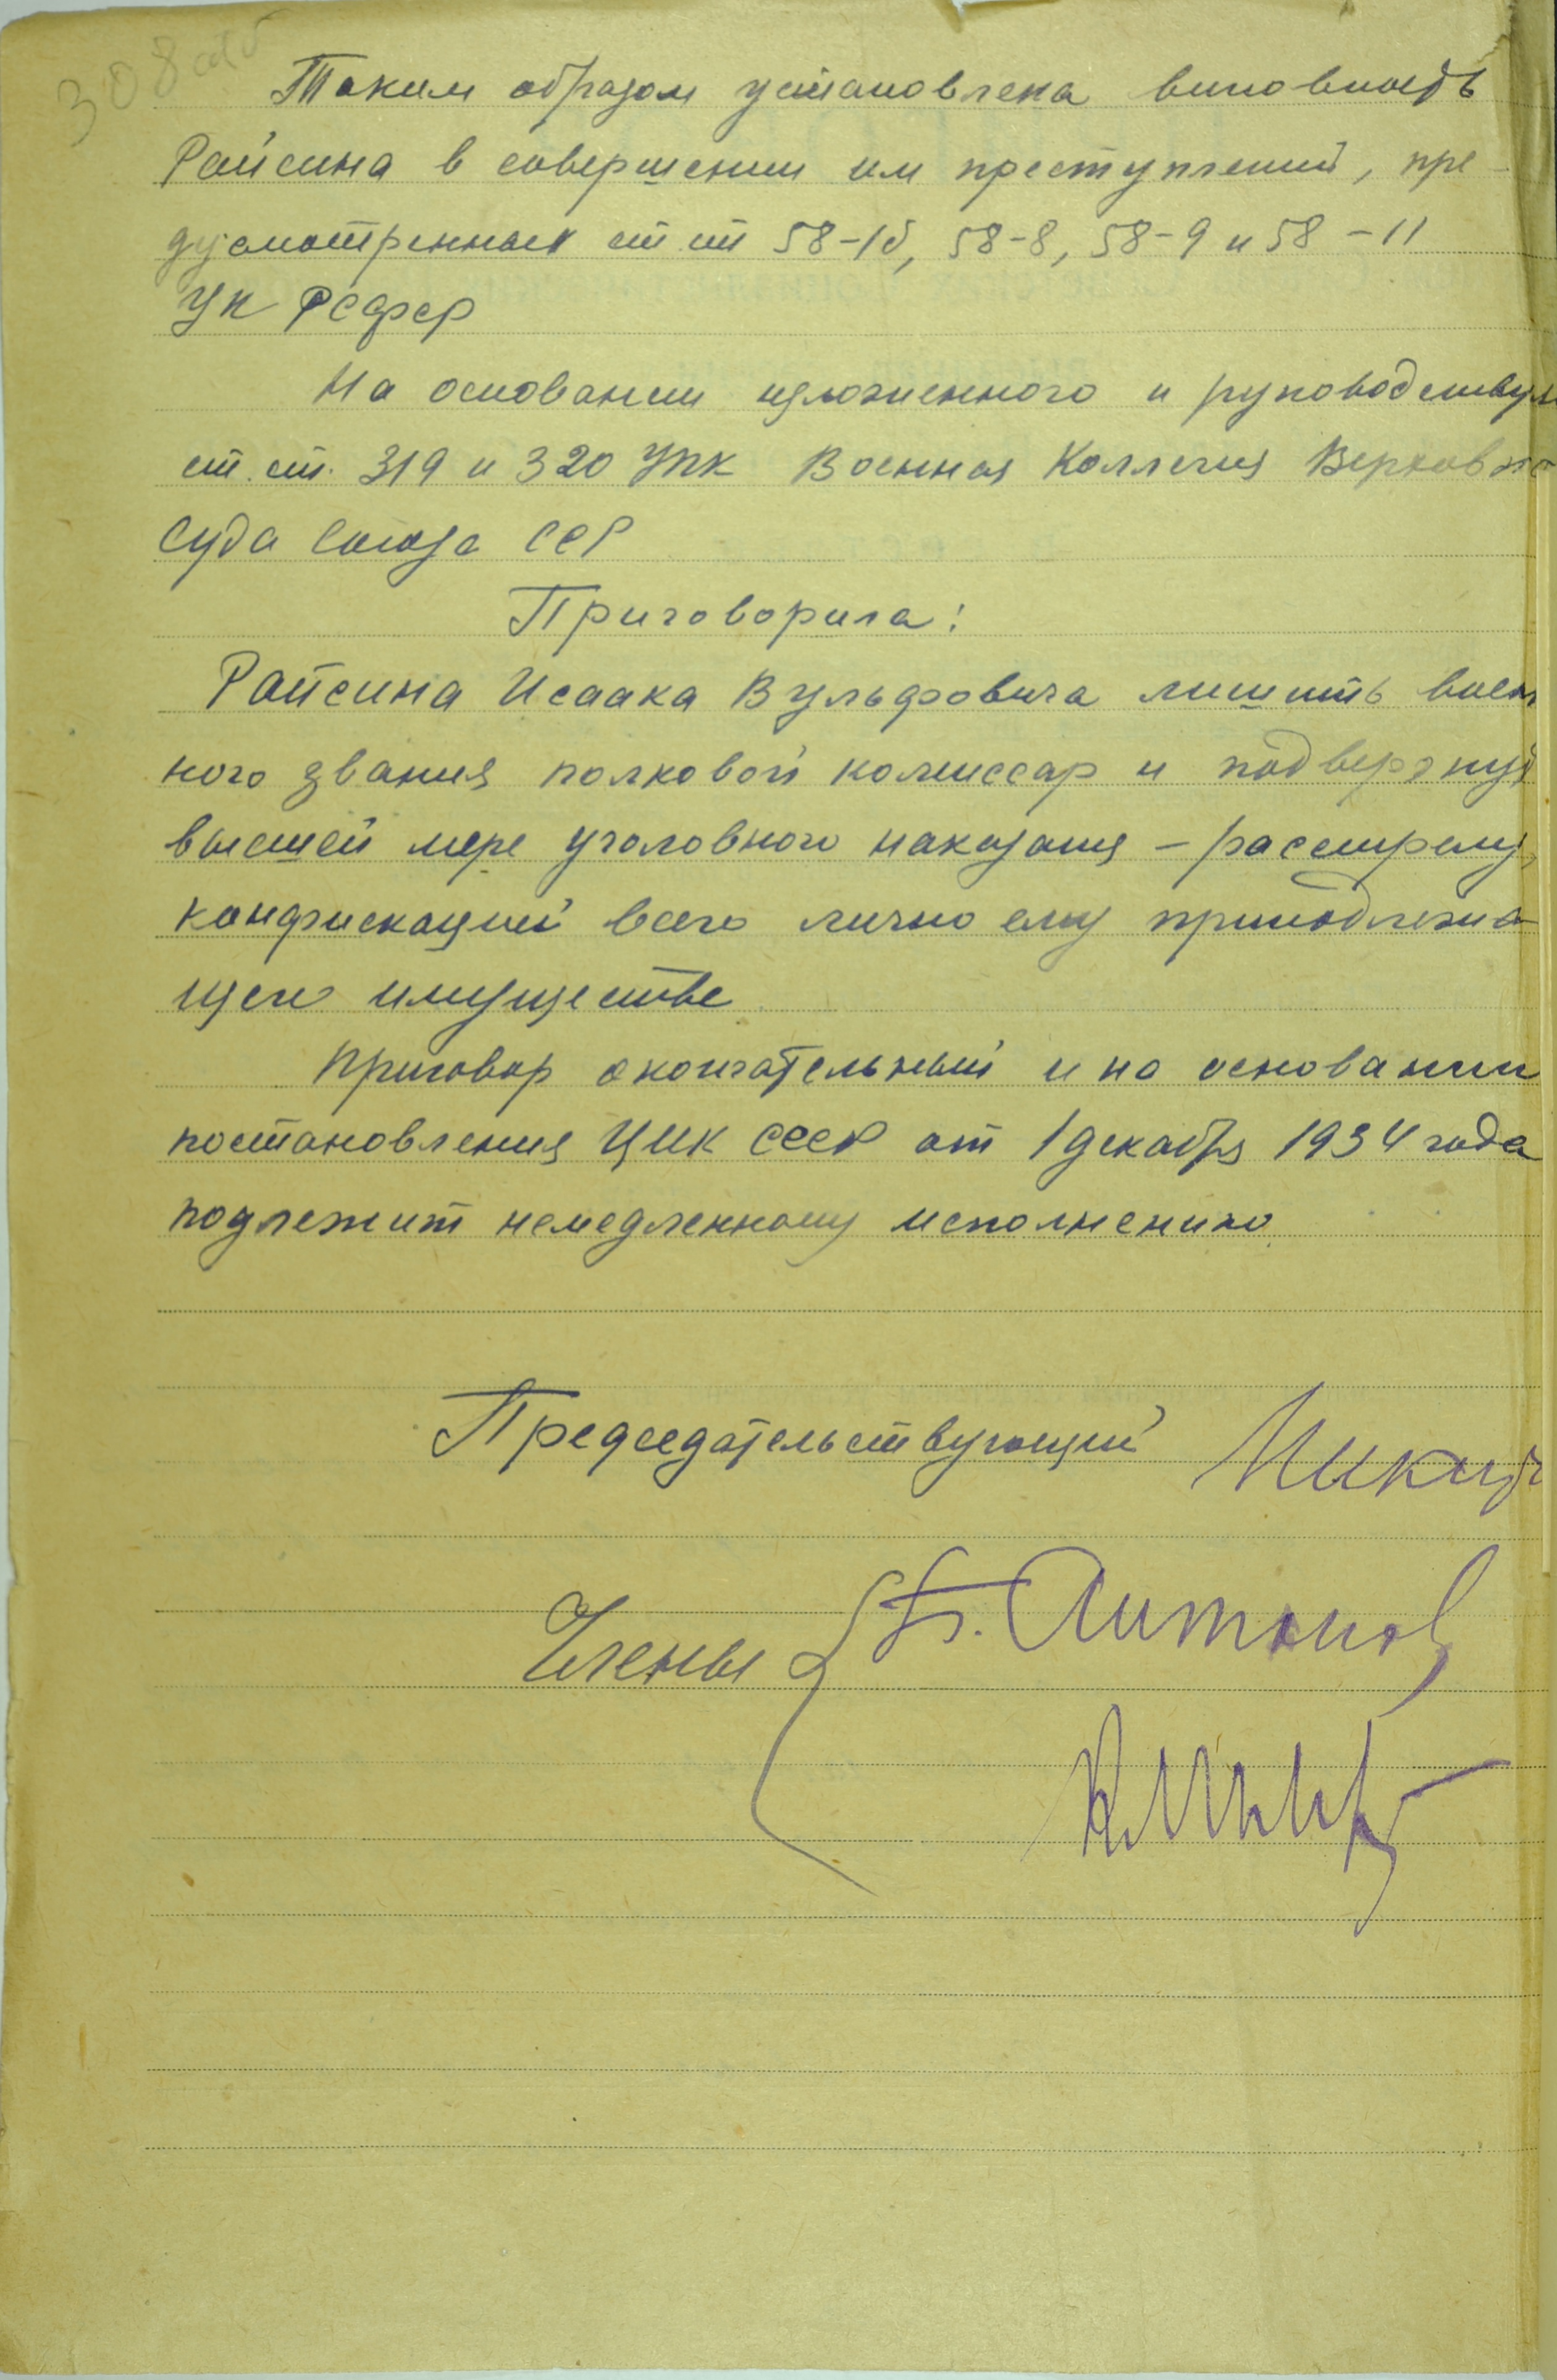 308 об
Таким образом установлена виновность
Райсина в совершении им преступлений, пре-
дусмотренных ст. ст 58-1б, 58-8, 58-9 и 58-11
УК РСФСР
На основании изложенного и руководствуя
ст. ст. 319 и 320 УПК Военная Коллегия Верховно
Суда Союза ССР
Приговорила:
Райсина Исаака Вульфовича лишить воен
ного звания полковой комиссар и подвергнут
высшей мере уголовного наказания – расстрелу,
конфискацией всего лично ему принадлежа
щего имущества
Приговор окончательный и на основании
постановления ЦИК СССР от 1 декабря 1934 года
подлежит немедленному исполнению.
Председательствующий
Члены Антонов